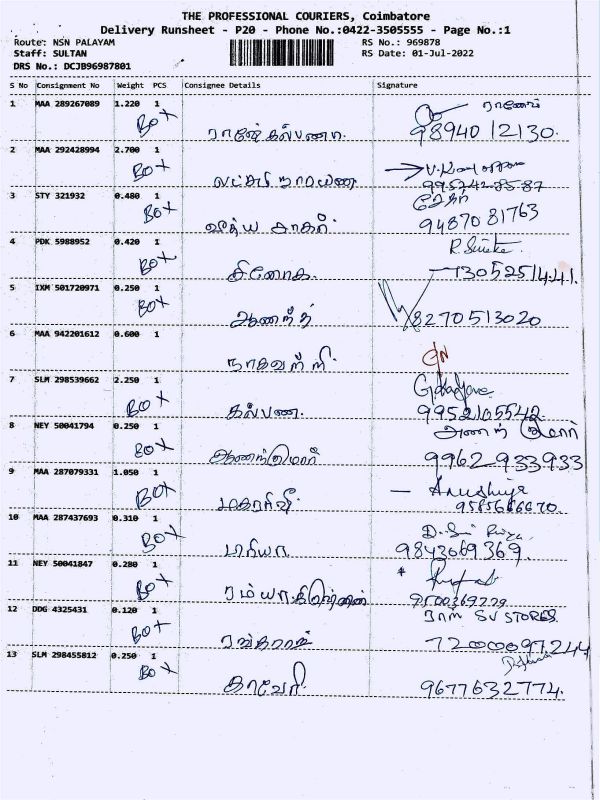 THE PROFESSIONAL COURIERS, Coimbatore
Delivery Runsheet - P20 - Phone No.:0422-3505555 - Page No.:1
Route: NSN PALAYAM RS No.: 969878
Staff: SULTAN RS Date: 01-Jul-2022
DRS No.: DCJB96987801
S No Consignment No Weight PCS Consignee Details Signature
1 MAA 289267089 1.220 1
BOX ராஜேகல்பனா 98940 12130
2 MAA 292428994 2.700 1
BOX லட்சுமி நாராயண 9952428587
3 STY 321932 0.480 1
BOX 94870 81763
4 PDK 5988952 0.420 1
BOX
5 IXM 501720971 0.250 1
BOX ஆனந்த் 8270513020
6 MAA 942201612 0.600 1
7 SLM 298539662 2.250 1
BOX கல்பனா 9952105542
8 NEY 50041794 0.250 1
BOX ஆனந்த்குமார் 9962933933
9 MAA 287079331 1.050 1
BOX Anushiya
10 MAA 287437693 0.310 1
BOX மரியா 9843069369
11 NEY 50041847 0.280 1
BOX 9500369779
12 DDG 4325431 0.120 1 ராம் SV STORES
BOX ரங்கராஜ் 7200097244
13 SLM 298455812 0.250 1
BOX காவேரி 9677632774